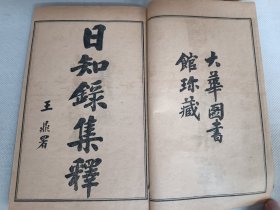 大華圖書
館珎藏
日知錄集釋
王鼎署